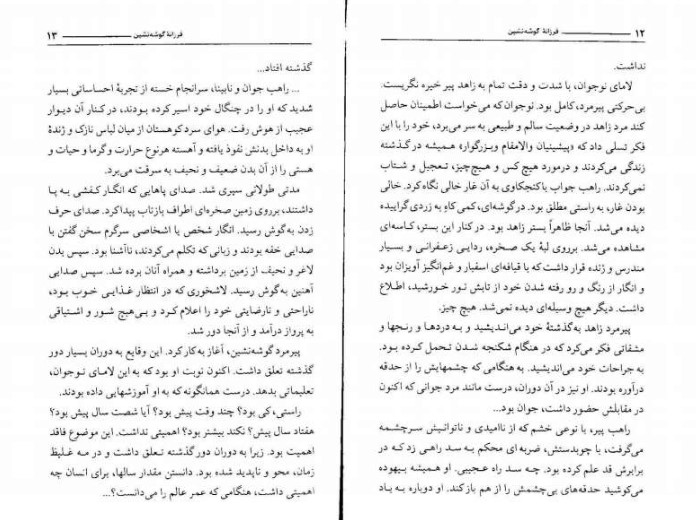 ۱۲ فرزانهٔ گوشه‌نشین
نداشت.
لامای نوجوان، با شدت و دقت تمام به زاهد پیر خیره نگریست.
بی‌حرکتی پیرمرد، کامل بود. نوجوان که می‌خواست اطمینان حاصل
کند مرد زاهد در وضعیت سالم و طبیعی به سر می‌برد، خود را با این
فکر تسلی داد که «پیشینیان والامقام وبزرگوار» همیشه در گذشته
زندگی می‌کردند و درمورد هیچ کس و هیچ‌چیز، تعجیل و شتاب
نمی‌کردند. راهب جواب باکنجکاوی به آن غار خالی نگاه کرد. خالی
بودن غار، به راستی مطلق بود. درگوشه‌ای، کمی کاهِ به زردی گراییده
دیده می‌شد. آنجا ظاهراً بستر زاهد بود. در کنار این بستر، کاسه‌ای
مشاهده می‌شد. برروی لبهٔ یک صخره، ردایی زعفرانی و بسیار
مندرس و ژنده قرار داشت که با قیافه‌ای اسفبار و غم‌انگیز آویزان بود
و انگار از رنگ و رو رفته شدن خود از تابش نور خورشید، اطلاع
داشت. دیگر هیچ وسیله‌ای دیده نمی‌شد. هیچ چیز.
پیرمرد زاهد به‌گذشتهٔ خود می‌اندیشید و به دردها و رنجها و
مشقاتی فکر می‌کرد که در هنگام شکنجه شدن تحمل کرده بود.
به جراحات خود می‌اندیشید. به هنگامی که چشمهایش را از حدقه
درآورده بودند. او نیز در آن دوران، درست مانند مرد جوانی که اکنون
در مقابلش حضور داشت، جوان بود...
راهب پیر، با نوعی خشم که از ناامیدی و ناتوانیش سرچشمه
می‌گرفت، با چوبدستش، ضربه‌ای محکم به سد راهی زد که در
برابرش قد علم کرده بود. چه سد راه عجیبی. او همیشه بیهوده
می‌کوشید حدقه‌های بی‌چشمش را از هم بازکند. او دوباره به یاد
فرزانهٔ گوشه‌نشین ۱۳
گذشته افتاد...
... راهب جوان و نابینا، سرانجام خسته از تجربهٔ احساساتی بسیار
شدید که او را در چنگال خود اسیر کرده بودند، در کنار آن دیوار
عجیب از هوش رفت. هوای سرد کوهستان از میان لباس نازک و ژندهٔ
او به داخل بدنش نفوذ یافته و آهسته هرنوع حرارت وگرما و حیات و
هستی را از آن بدن ضعیف و نحیف به سرقت می‌برد.
مدتی طولانی سپری شد. صدای پاهایی که انگار کفشی به پا
داشتند، برروی زمین صخره‌ای اطراف بازتاب پیداکرد. صدای حرف
زدن به‌گوش رسید. انگار شخص یا اشخاصی سرگرم سخن گفتن با
صدایی خفه بودند و زبانی که تکلم می‌کردند، ناآشنا بود. سپس بدن
لاغر و نحیف از زمین برداشته و همراه آنان برده شد. سپس صدایی
آهنین به‌گوش رسید. لاشخوری که در انتظار غذایی خوب بود،
ناراحتی و نارضایتی خود را اعلام کرد و بی‌هیچ شور و اشتیاقی
به پرواز درآمد و از آنجا دور شد.
پیرمرد گوشه‌نشین، آغاز به‌کار کرد. این وقایع به دوران بسیار دور
گذشته تعلق داشت. اکنون نوبت او بود که به این لامای نوجوان،
تعلیماتی بدهد. درست همانگونه که به او آموزشهایی داده بودند.
راستی، کی بود؟ چند وقت پیش بود؟ آیا شصت سال پیش بود؟
هفتاد سال پیش؟ نکند بیشتر بود؟ اهمیتی نداشت. این موضوع فاقد
اهمیت بود. زیرا به دوران دور گذشته تعلق داشت و در مه غلیظ
زمان، محو و ناپدید شده بود. دانستن مقدار سالها، برای انسان چه
اهمیتی داشت، هنگامی که عمر عالم را می‌دانست؟...